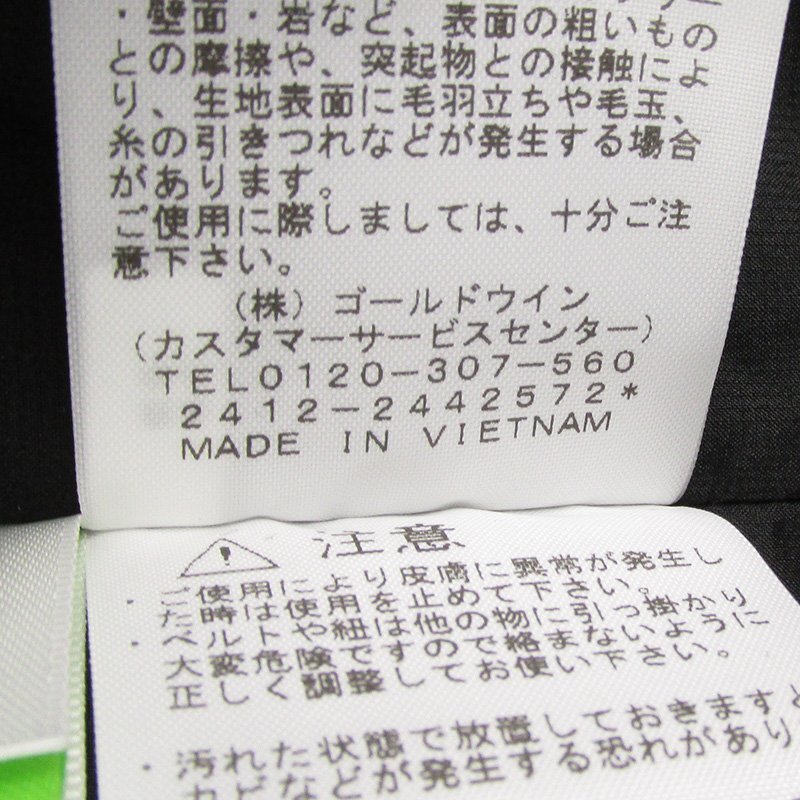 ・壁面・岩など、表面の粗いもの
との摩擦や、突起物との接触によ
り、生地表面に毛羽立ちや毛玉、
糸の引きつれなどが発生する場合
があります。
ご使用に際しましては、十分ご注
意下さい。
(株)ゴールドウイン
(カスタマーサービスセンター)
TEL0120-307-560
2412-2442572*
MADE IN VIETNAM
注意
・ご使用により皮膚に異常が発生し
た時は使用を止めて下さい。
・ベルトや紐は他の物に引っ掛かり
大変危険ですので絡まないように
正しく調整してお使い下さい。
・汚れた状態で放置しておきますと
カビなどが発生する恐れがあり